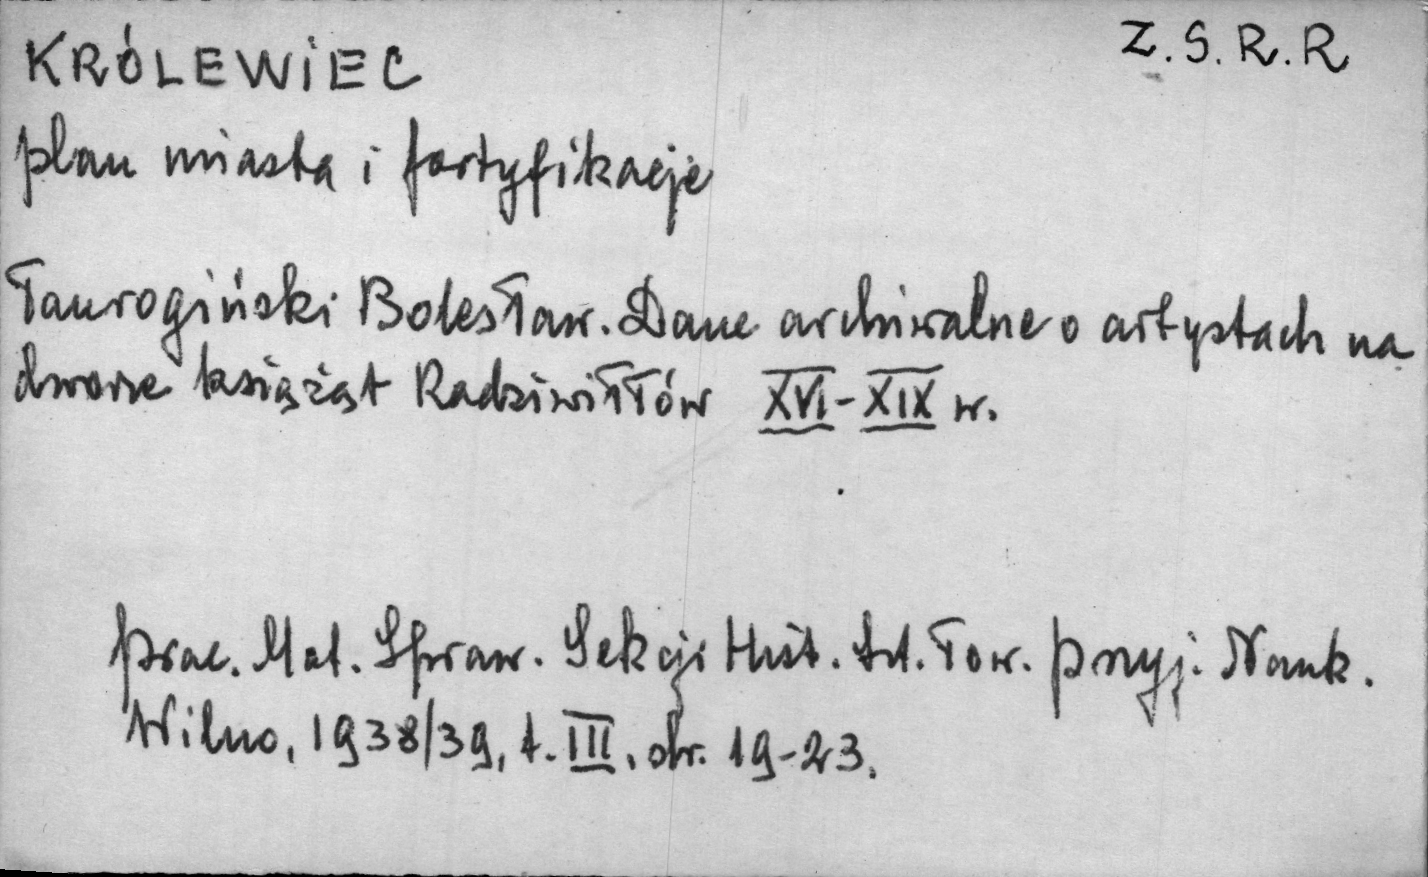 KRÓLEWIEC
Z.S.R.R
plan miasta i fortyfikacje
Taurogiński Bolesław. Dane archiwalne o artystach na
dworze książąt Radziwiłłów XVI-XIX w.
Prac. Mat. Spraw. Sekcji Hist. Szt. Tow. Przyj. Nauk.
Wilno, 1938/39, t. III, str. 19-23.